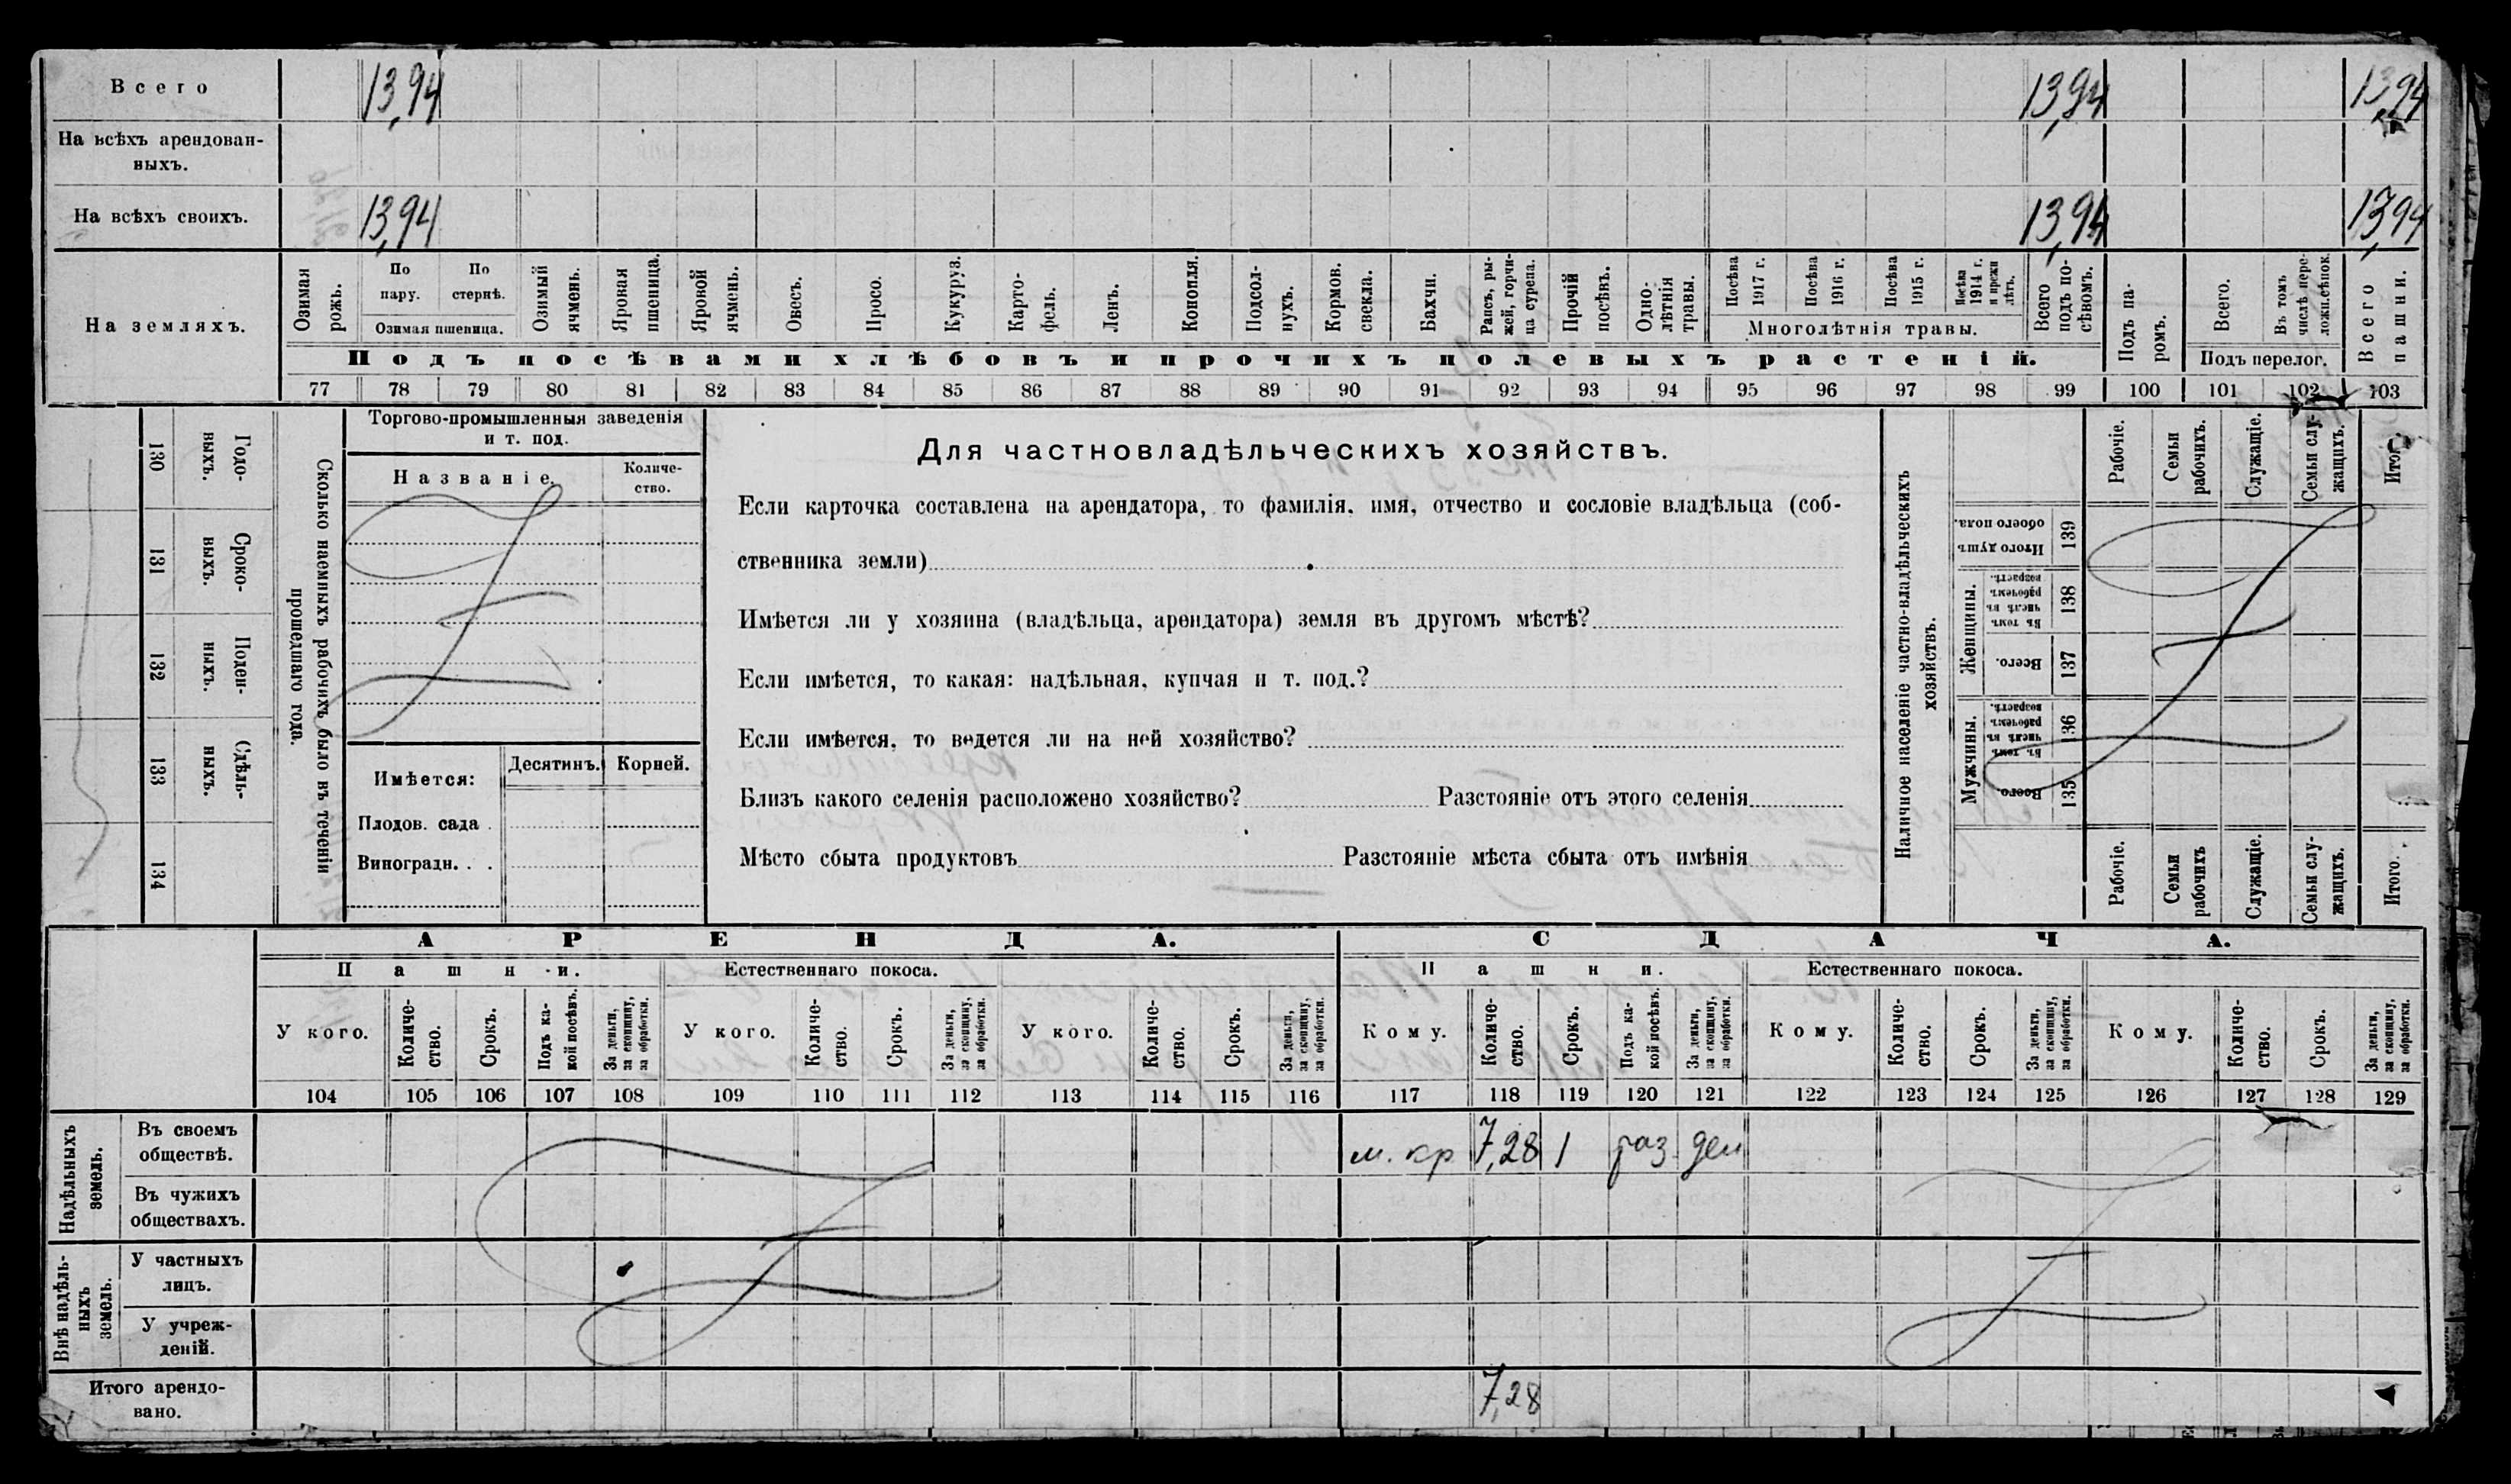 Всего 13,94 13,94 13,94
На всѣхъ арендован-
ныхъ.
На всѣхъ своихъ. 13,94 13,94 13,94
На земляхъ.
Озимая рожь.
По пару.
По стернѣ.
Озимая пшеница.
Озимый ячмень.
Яровая пшеница.
Яровой ячмень.
Овесъ.
Просо.
Кукуруз.
Карто-
фель.
Ленъ.
Конопля.
Подсол-
нухъ.
Кормов. свекла.
Бахчи.
Рапсъ, ры-
жей, горчи-
ца сурепа.
Прочій посѣвъ.
Одно-
лѣтнія травы.
Посѣва 1917 г.
Посѣва 1916 г.
Посѣва 1915 г.
Посѣва 1914 г. и прежн лѣтъ.
Многолѣтнія травы.
Всего подъ по-
сѣвомъ.
Подъ па-
ромъ.
Всего.
Въ томъ числѣ пере-
лож.сѣнок.
Подъ перелог.
Всего пашни.
Подъ посѣвами хлѣбовъ и прочихъ полевыхъ растеній.
77 78 79 80 81 82 83 84 85 86 87 88 89 90 91 92 93 94 95 96 97 98 99 100 101 102 103
130 Годо-
выхъ.
131 Сроко-
выхъ.
132 Поден-
ныхъ.
133 Сдѣль-
ныхъ.
134
Сколько наемныхъ рабочихъ было въ теченіи
прошедшаго года.
Торгово-промышленныя заведенія
и т. под.
Названіе.
Количе-
ство.
Имѣется:
Десятинъ. Корней.
Плодов. сада .
Виноградн. . .
Для частновладѣльческихъ хозяйствъ.
Если карточка составлена на арендатора, то фамилія, имя, отчество и сословіе владѣльца (соб-
ственника земли)
Имѣется ли у хозяина (владѣльца, арендатора) земля въ другомъ мѣстѣ?
Если имѣется, то какая: надѣльная, купчая и т. под.?
Если имѣется, то ведется ли на ней хозяйство?
Близъ какого селенія расположено хозяйство? Разстояніе отъ этого селенія
Мѣсто сбыта продуктовъ Разстояніе мѣста сбыта отъ имѣнія
Наличное населеніе частно-владѣльческихъ
хозяйствъ.
Рабочіе.
Семьи рабочихъ.
Служащіе.
Семьи слу-
жащихъ.
Итого
Итого душъ обоего пола. 139
Женщины.
Въ томъ числѣ въ рабочемъ возрастѣ. 138
Всего. 137
Мужчины.
Въ томъ числѣ въ рабочемъ возрастѣ. 136
Всего 135
Рабочіе.
Семьи рабочихъ
Служащіе.
Семьи слу-
жащихъ.
Итого.
АРЕНДА. СДАЧА.
Пашни. Естественнаго покоса. Пашни. Естественнаго покоса.
У кого.
Количе-
ство.
Срокъ.
Подъ ка-
кой посѣвъ.
За деньги, за скопщину, за обработки.
У кого.
Количе-
ство.
Срокъ.
За деньги, за скопщину, за обработки.
У кого.
Количе-
ство.
Срокъ.
За деньги, за скопщину, за обработки.
Кому.
Количе-
ство.
Срокъ.
Подъ ка-
кой посѣвъ.
За деньги, за скопщину, за обработки.
Кому.
Количе-
ство.
Срокъ.
За деньги, за скопщину, за обработки.
Кому.
Количе-
ство.
Срокъ.
За деньги, за скопщину, за обработки.
104 105 106 107 108 109 110 111 112 113 114 115 116 117 118 119 120 121 122 123 124 125 126 127 128 129
Надѣльныхъ земель.
Въ своемъ
обществѣ. м. кр 7,28 1 раз. ден
Въ чужихъ
обществахъ.
Внѣ надѣль-
ныхъ земель.
У частныхъ
лицъ.
У учреж-
деній.
Итого арендо-
вано. 7,28